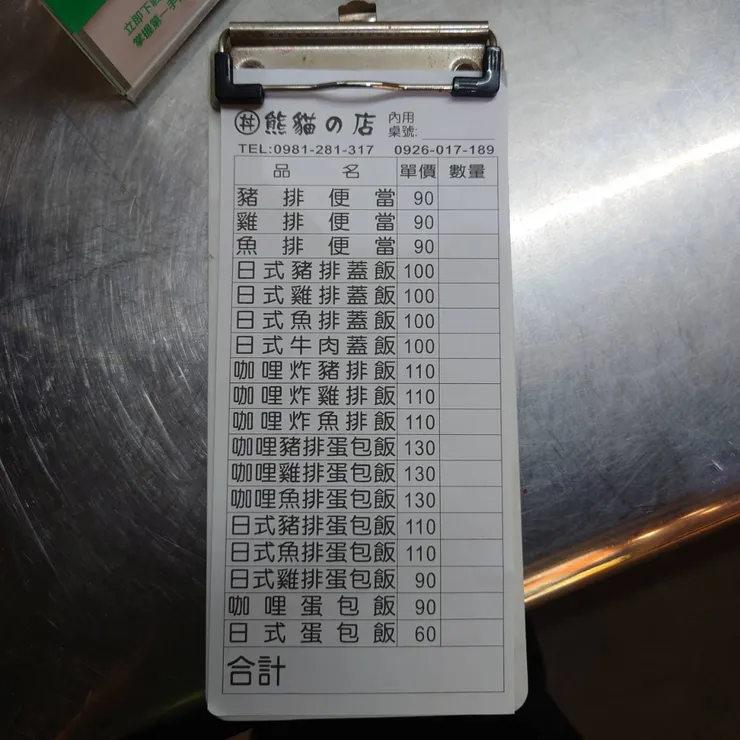 立即下
掌握第一手
丼 熊貓の店 內用
桌號:
TEL:0981-281-317 0926-017-189
品名 單價 數量
豬排便當 90
雞排便當 90
魚排便當 90
日式豬排蓋飯 100
日式雞排蓋飯 100
日式魚排蓋飯 100
日式牛肉蓋飯 100
咖哩炸豬排飯 110
咖哩炸雞排飯 110
咖哩炸魚排飯 110
咖哩豬排蛋包飯 130
咖哩雞排蛋包飯 130
咖哩魚排蛋包飯 130
日式豬排蛋包飯 110
日式魚排蛋包飯 110
日式雞排蛋包飯 90
咖哩蛋包飯 90
日式蛋包飯 60
合計